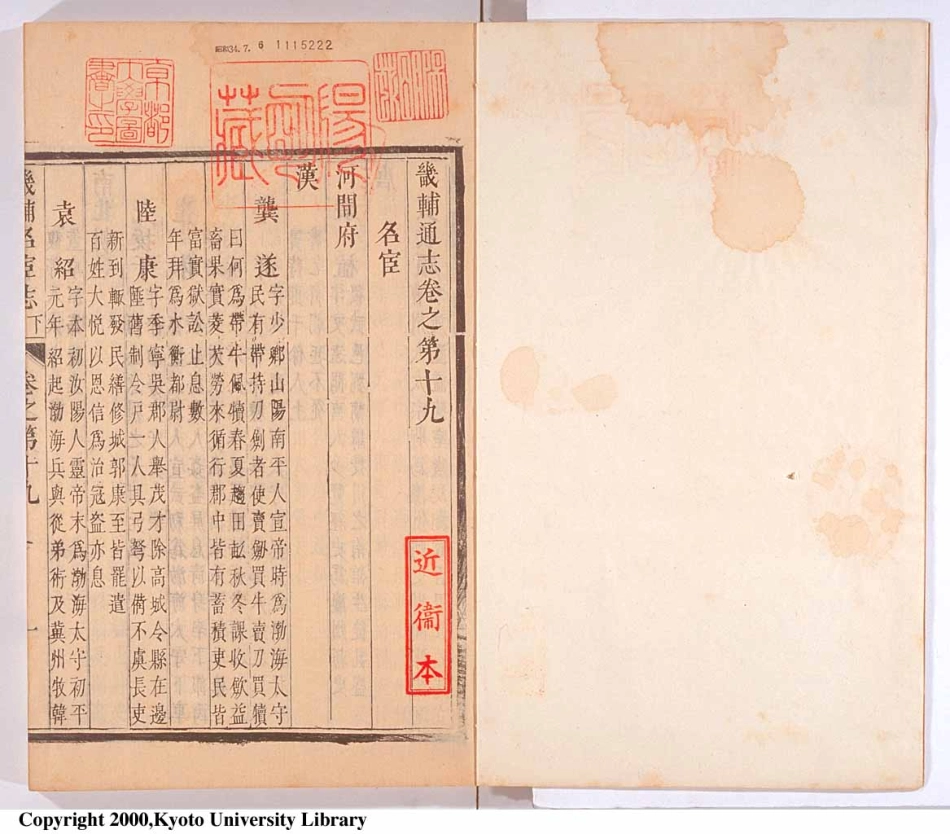 昭和34.7.6 1115222
京都大學圖書之印
陽明藏
畿輔通志卷之第十九
近衞本
名宦
河間府
漢
龔遂字少卿山陽南平人宣帝時爲渤海太守
民有帶持刀劍者使賣劍買牛賣刀買犢
曰何爲帶牛佩犢春夏趨田畝秋冬課收斂益
畜果實菱芡勞來循行郡中皆有蓄積吏民皆
富實獄訟止息數
年拜爲水衡都尉
陸康字季寧吳郡人舉茂才除高城令縣在邊
陲舊制令戶之一人具弓弩以備不虞長吏
新到輒發民繕修城郭康至皆罷遣
百姓大悅以恩信爲治冦盜亦息
袁紹字本初汝陽人靈帝末爲渤海太守初平
元年紹起渤海兵與從弟術及冀州牧韓
畿輔名宦志下 卷之第十九 一
Copyright 2000,Kyoto University Library